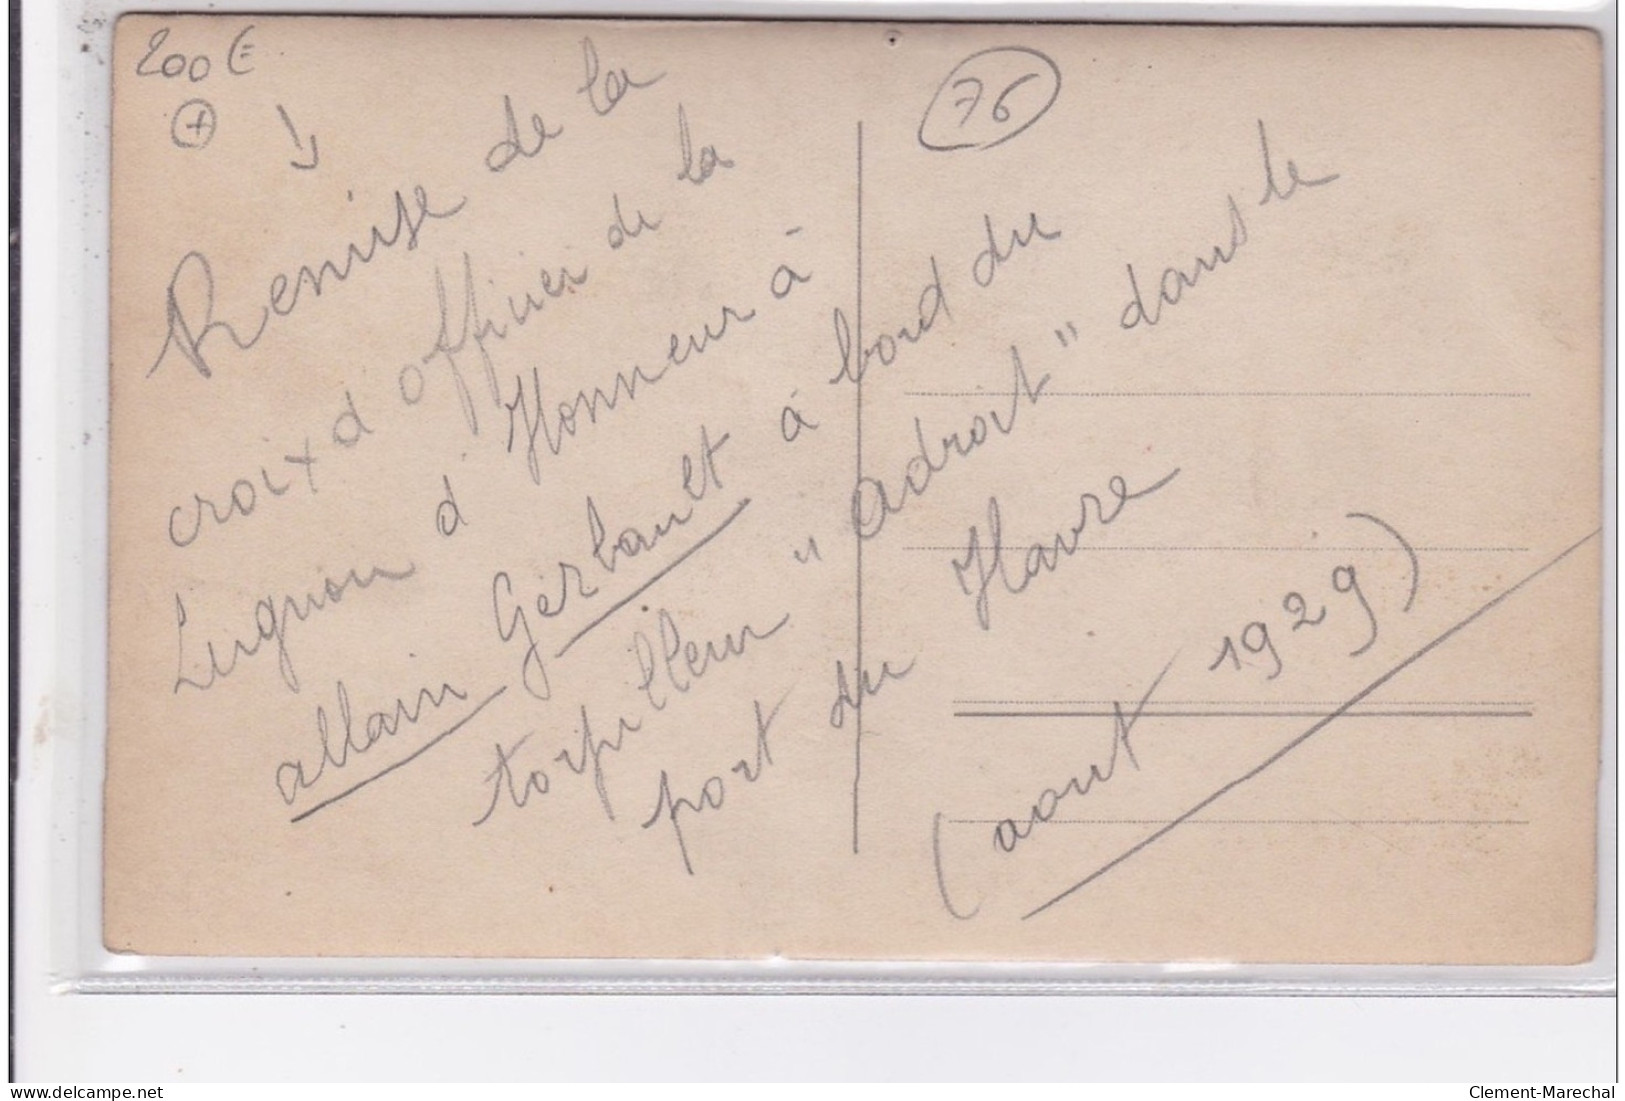 200€
+
76
Remise de la
croix d'officier de la
Legion d'Honneur à
allain Gerbault à bord du
torpilleur "adroit" dans le
port du Havre
(aout 1929)
delcampe.net
Clement-Marechal